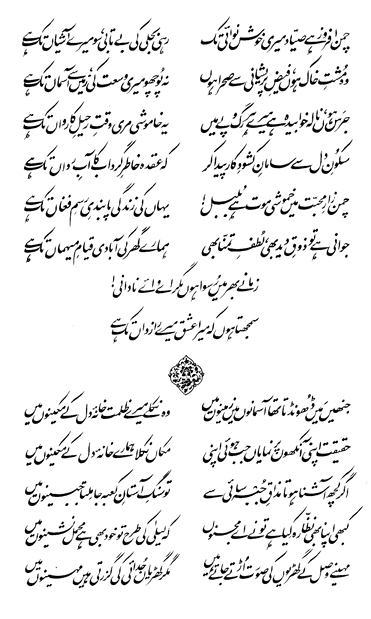 چمن افروز ہے صیاد میری خوش نوائی تک
رہی بجلی کی بے تابی، سو میرے آشیاں تک ہے
وہ مشتِ خاک ہوں، فیضِ پریشانی سے صحرا ہوں
نہ پوچھو میری وسعت کی، زمیں سے آسماں تک ہے
جرس ہوں، نالہ خوابیدہ ہے میرے ہر رگ و پے میں
یہ خاموشی مری وقتِ رحیلِ کارواں تک ہے
سکونِ دل سے سامانِ کشودِ کار پیدا کر
کہ عقدہ خاطرِ گرداب کا آبِ رواں تک ہے
چمن زارِ محبت میں خموشی موت ہے بلبل!
یہاں کی زندگی پابندیِ رسمِ فغاں تک ہے
جوانی ہے تو ذوقِ دید بھی، لطفِ تمنا بھی
ہمارے گھر کی آبادی قیامِ میہماں تک ہے
زمانے بھر میں رسوا ہوں مگر اے وائے نادانی!
سمجھتا ہوں کہ میرا عشق میرے رازداں تک ہے
جنھیں میں ڈھونڈتا تھا آسمانوں میں زمینوں میں
وہ نکلے میرے ظلمت خانۂ دل کے مکینوں میں
حقیقت اپنی آنکھوں پر نمایاں جب ہوئی اپنی
مکاں نکلا ہمارے خانۂ دل کے مکینوں میں
اگر کچھ آشنا ہوتا مذاقِ جبہہ سائی سے
تو سنگِ آستانِ کعبہ جا ملتا جبینوں میں
کبھی اپنا بھی نظارہ کیا ہے تو نے اے مجنوں
کہ لیلیٰ کی طرح تو خود بھی ہے محمل نشینوں میں
مہینے وصل کے گھڑیوں کی صورت اڑتے جاتے ہیں
مگر گھڑیاں جدائی کی گزرتی ہیں مہینوں میں